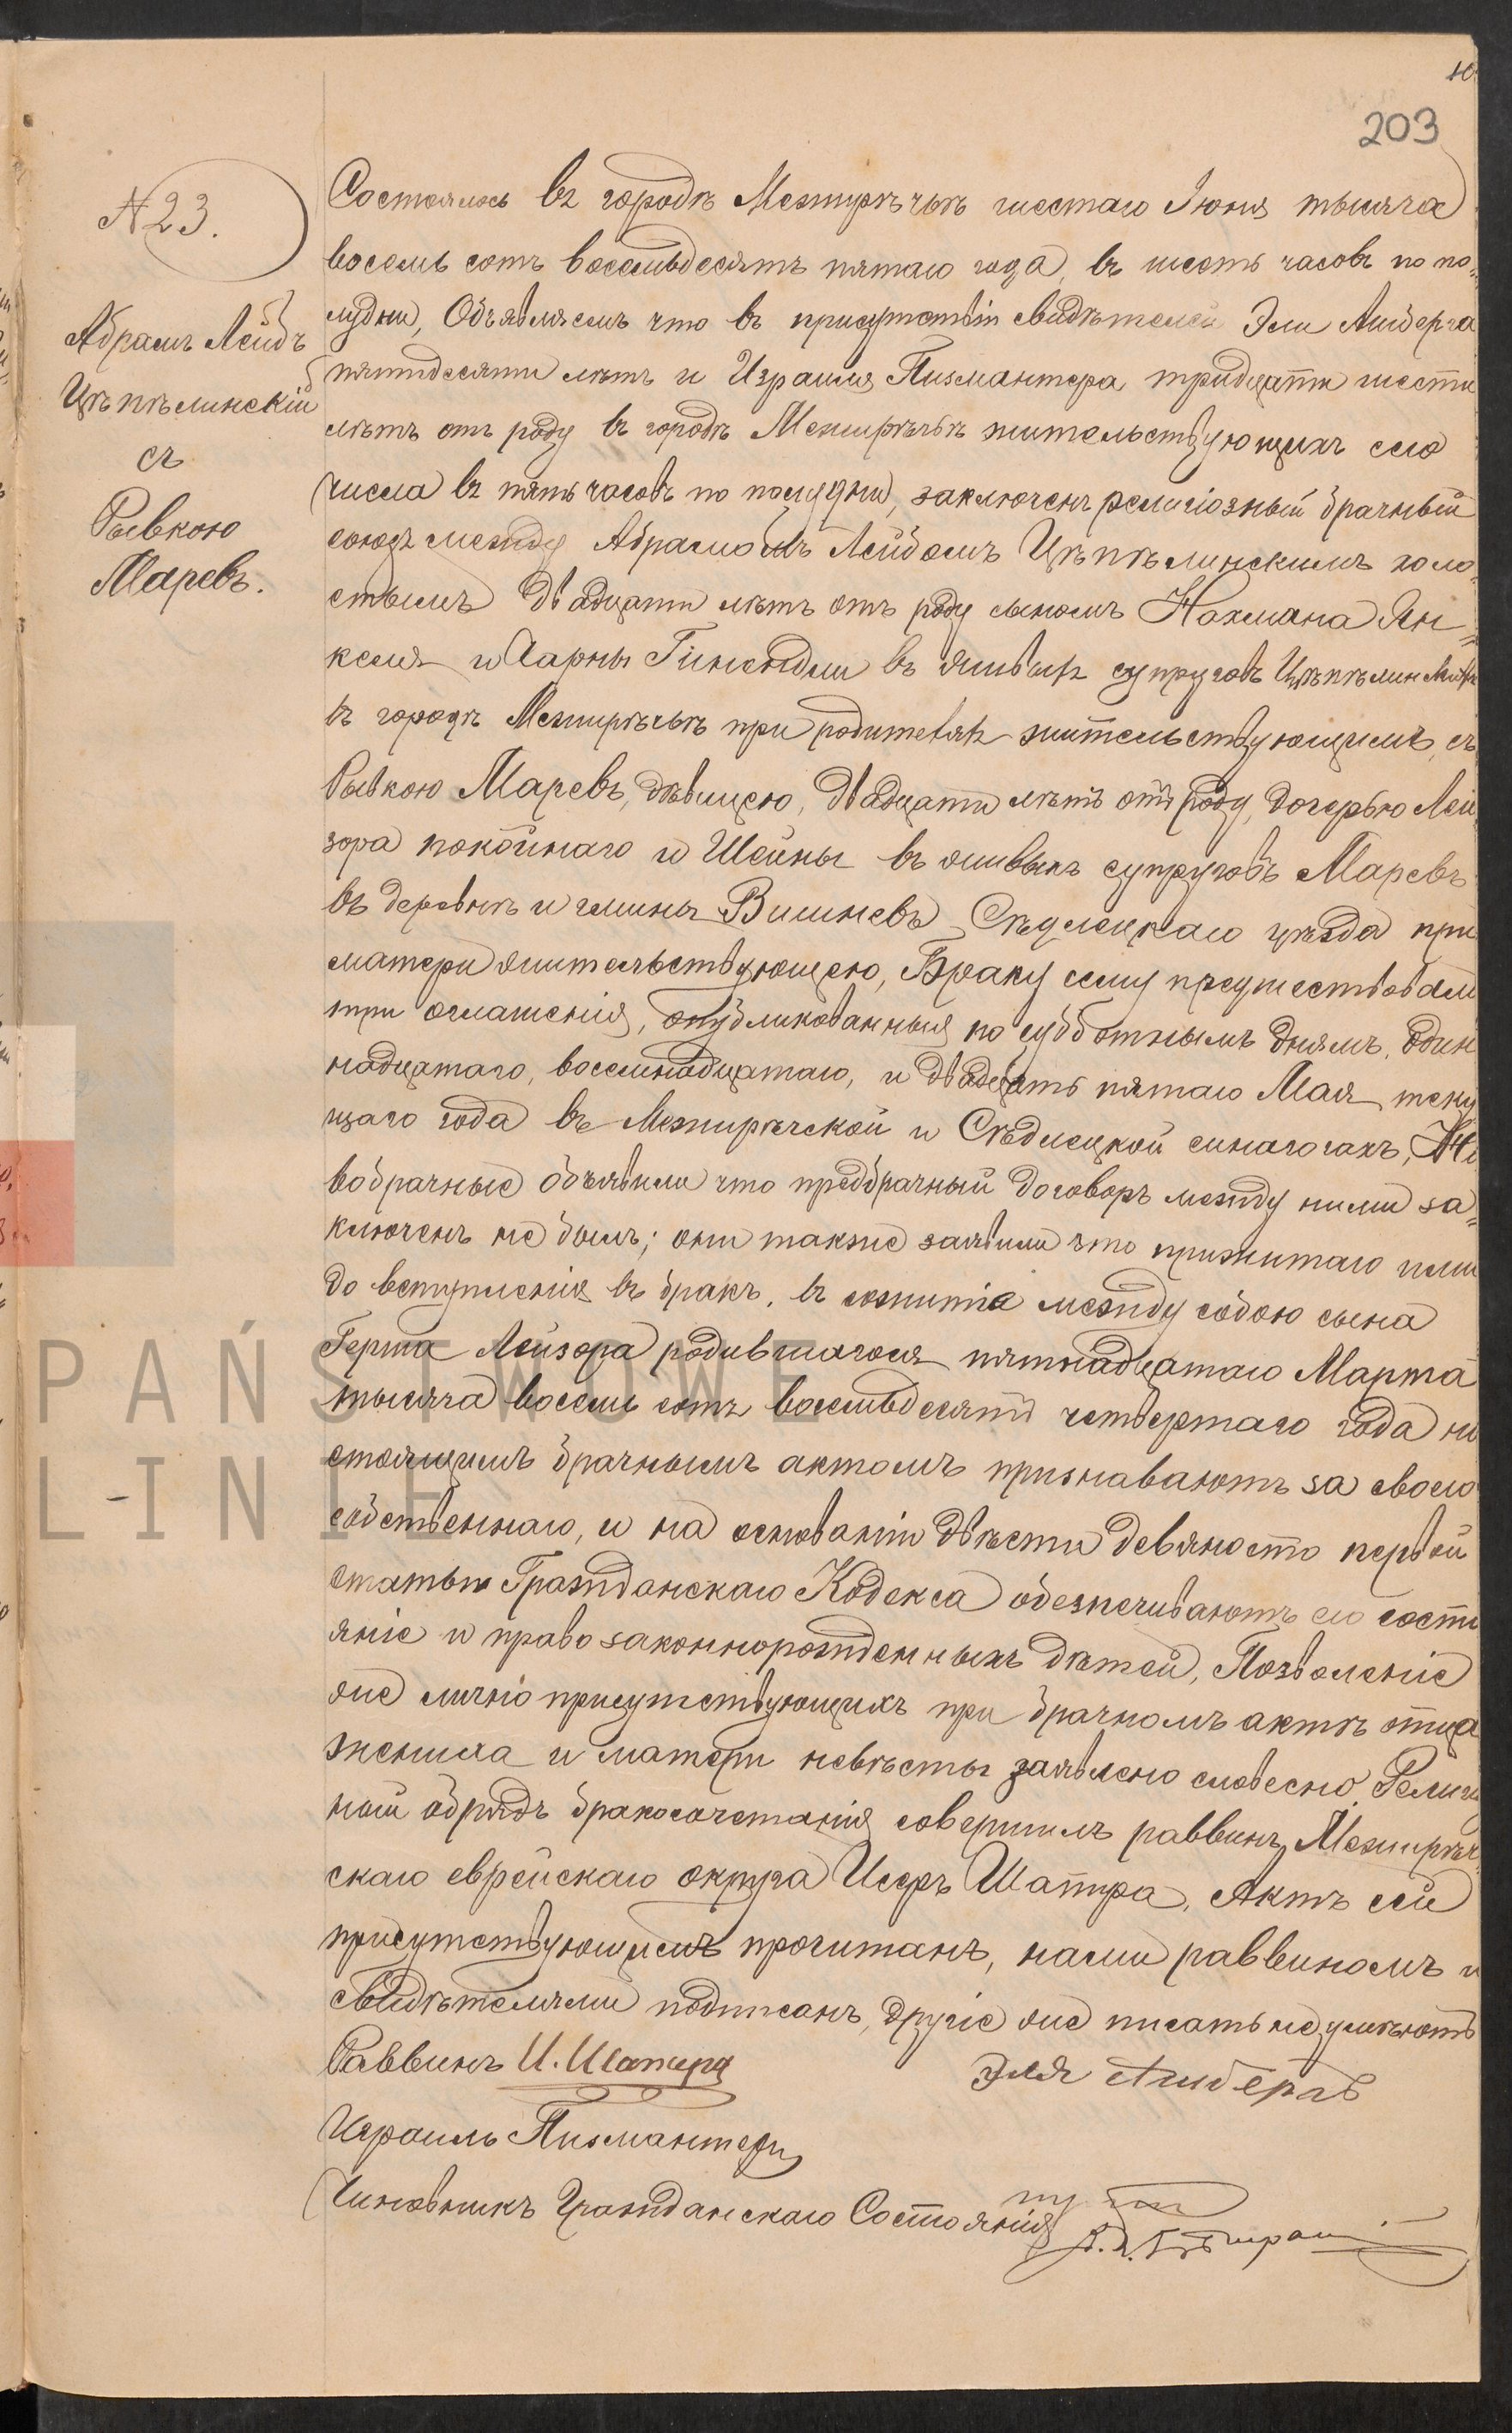 203
№ 23.
Абрамъ Лейбъ
Цѣпѣлинскій
съ
Рывкою
Маревъ.
Состоялось въ городѣ Межирѣчьѣ шестаго Іюня тысяча
восемь сотъ восемьдесятъ пятаго года, въ шесть часовъ по по=
лудни, Объявляемъ что въ присутствіи свидѣтелей Эли Аигберга
пятидесяти лѣтъ и Израиля Пизмантера тридцати шести
лѣтъ отъ роду въ городѣ Межирѣчьѣ жительствующихъ сего
числа въ пять часовъ по полудни, заключенъ религіозный брачный
союзъ между Абрамомъ Лейбомъ Цѣпѣлинскимъ холо=
стымъ двадцати лѣтъ отъ роду сыномъ Нахмана Ян=
келя и Чарны Гинендли въ живыхъ супруговъ Цѣпѣлинскихъ
въ городѣ Межирѣчьѣ при родителяхъ жительствующимъ, съ
Рывкою Маревъ, дѣвицею, двадцати лѣтъ отъ роду, дочерью Лей
зора покойнаго и Шейны въ живыхъ супруговъ Маревъ
въ деревнѣ и гминѣ Вишневъ Сѣдлецкаго уѣзда при
матери жительствующею, Браку сему предшествовали
три оглашенія, опубликованныя по субботнымъ днямъ, один
надцатаго, восемнадцатаго, и двадцать пятаго Мая теку
щаго года въ Межирѣчской и Сѣдлецкой синагогахъ, Но
вобрачные объявили что предбрачный договоръ между ними за=
ключенъ не былъ; они также заявили что прижитаго ими
до вступленія въ бракъ, въ сожитіе между собою сына
Герша Лейзора родившагося пятнадцатаго Марта
тысяча восемь сотъ восемьдесятъ четвертаго года на
стоящимъ брачнымъ актомъ признаваютъ за своего
собственнаго, и на основаніи двѣсти девяносто первой
статьи Гражданскаго Кодекса обезпечиваютъ его состо
яніе и право законнорожденныхъ дѣтей, Позволеніе
же лично присутствующихъ при брачномъ актѣ отца
жениха и матери невѣсты заявлено словесно. Религіоз
ный обрядъ бракосочетанія совершилъ раввинъ Межирѣч=
скаго еврейскаго округа Исеръ Шапира. Актъ сей
присутствующимъ прочитанъ, нами раввиномъ и
свидѣтелями подписанъ, другіе же писать не умѣютъ
Раввинъ И. Шапира Эля
Израиль Пизмантеръ
Чиновникъ Гражданскаго Состоянія
PAŃSTWOWE
LINIE